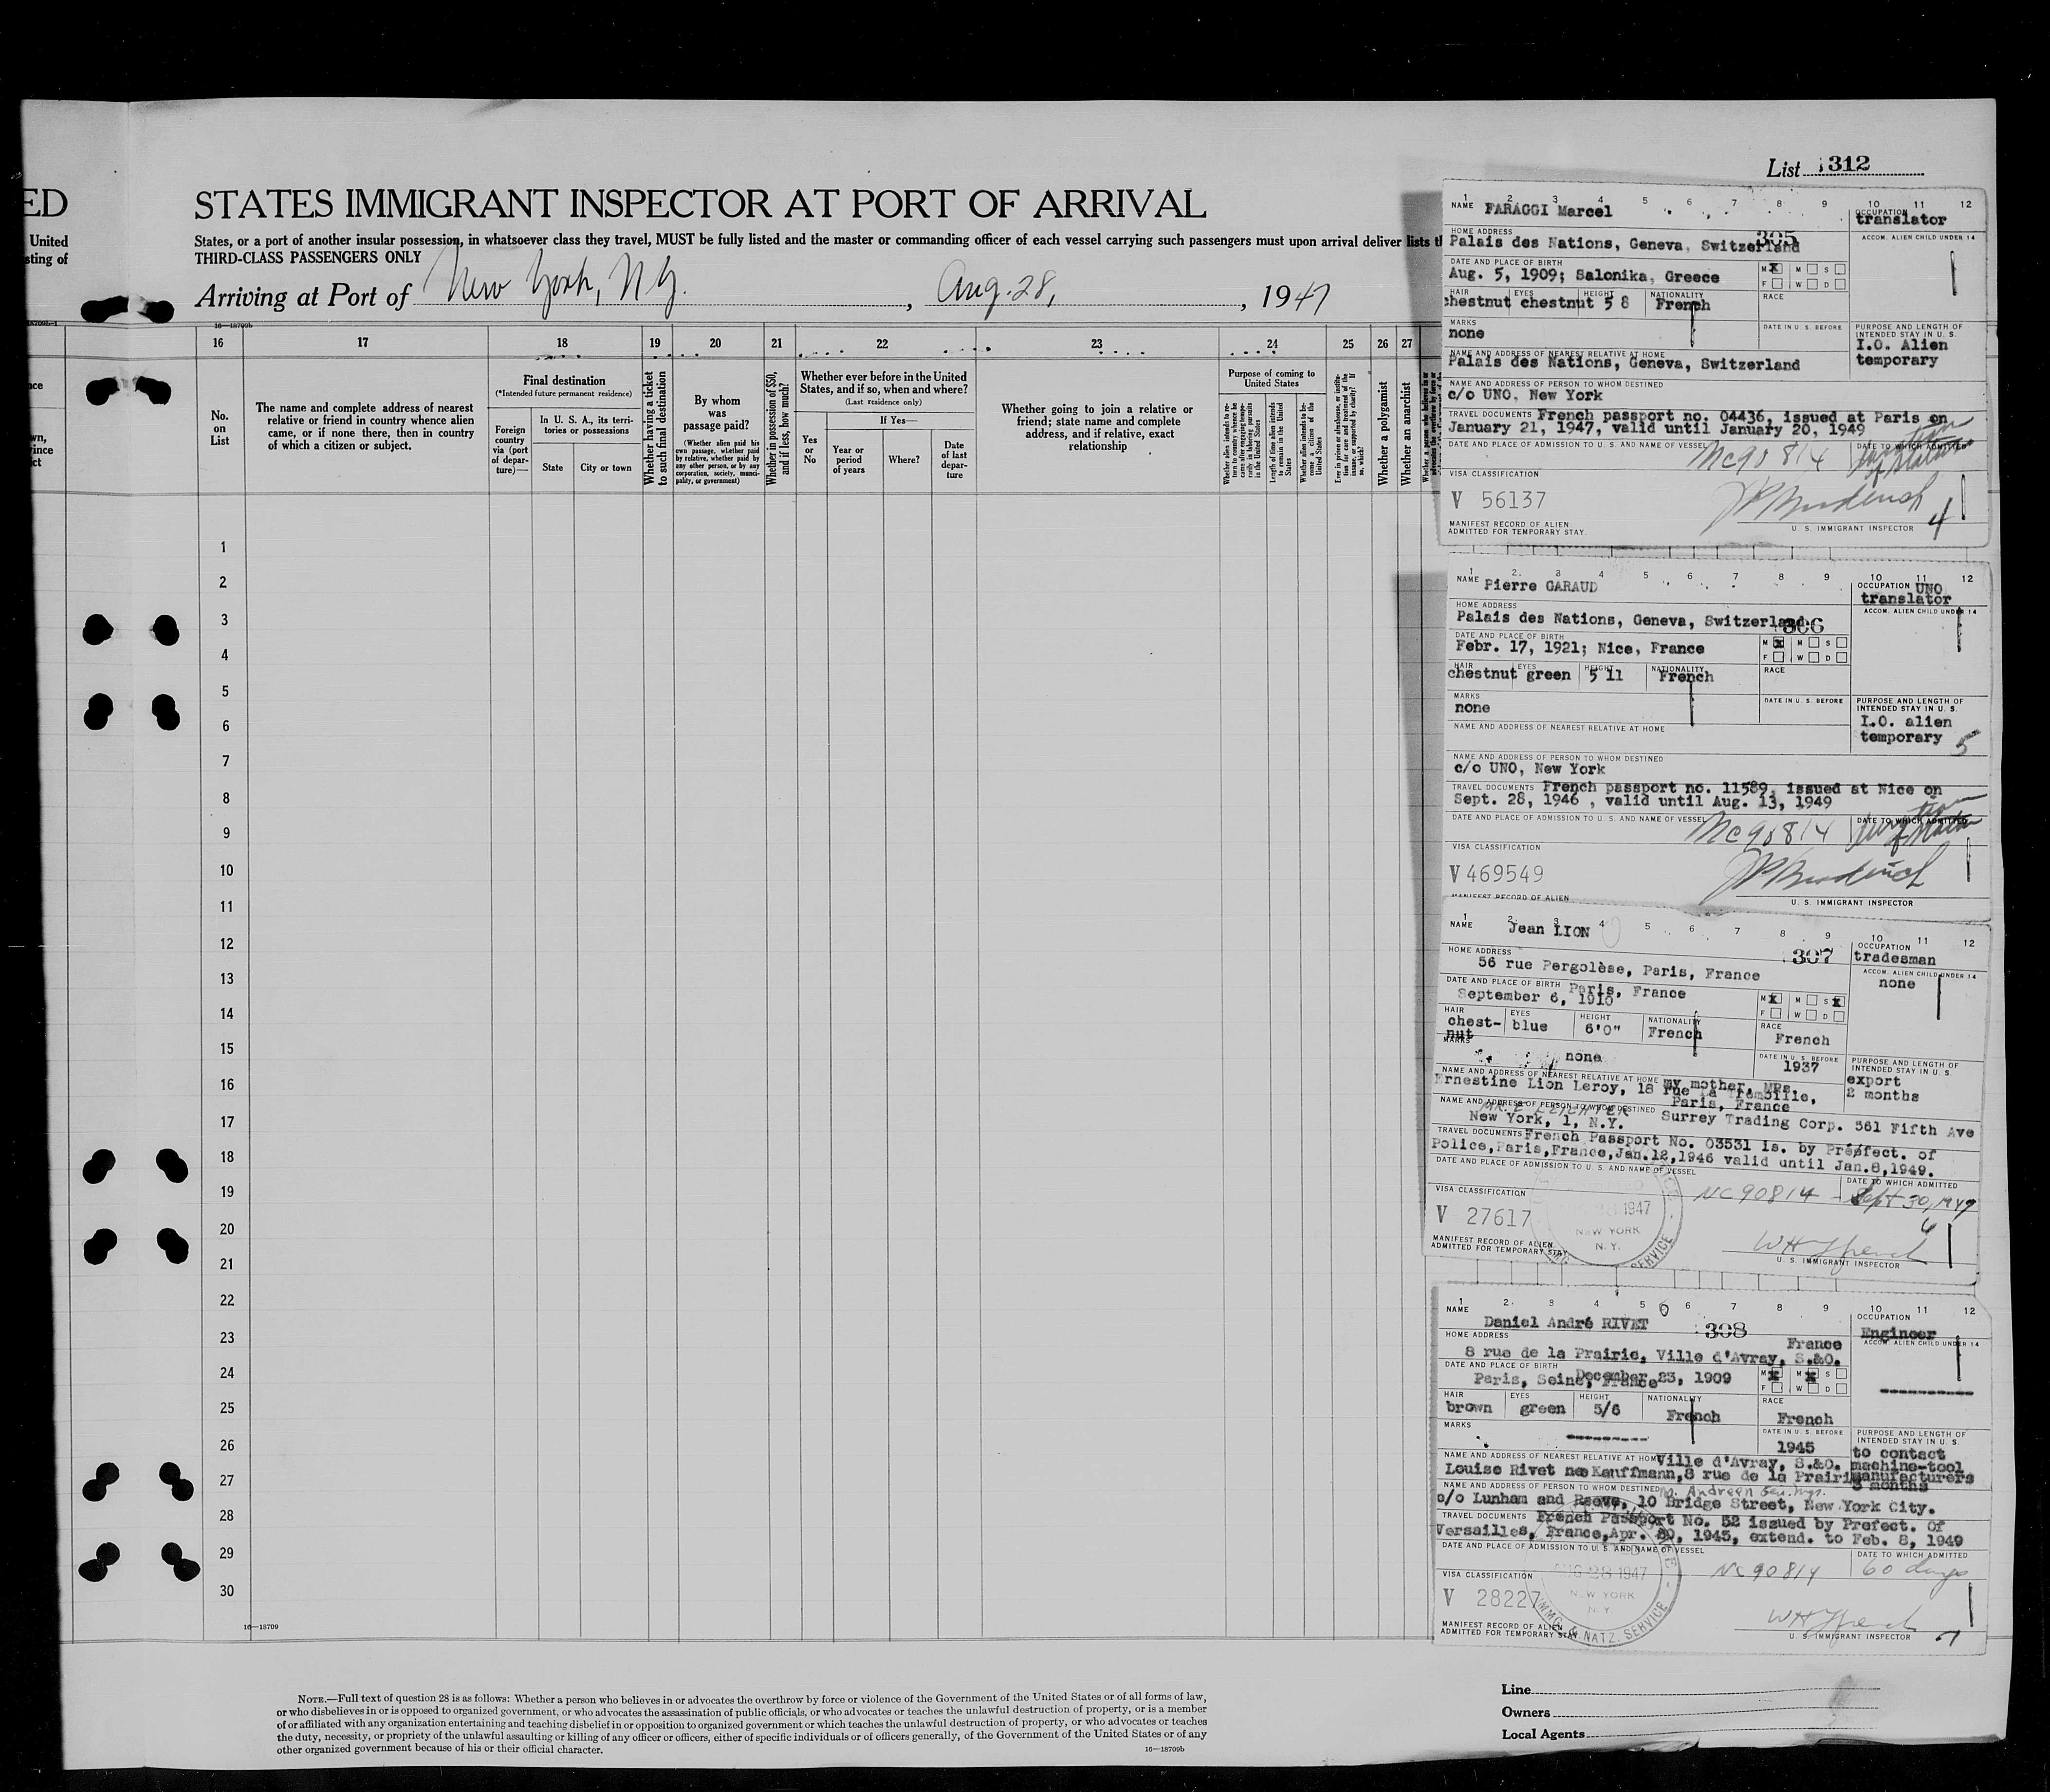 List 312
ED
STATES IMMIGRANT INSPECTOR AT PORT OF ARRIVAL
United
States, or a port of another insular possession, in whatsoever class they travel, MUST be fully listed and the master or commanding officer of each vessel carrying such passengers must upon arrival deliver lists
sting of
THIRD-CLASS PASSENGERS ONLY
Arriving at Port of New York, NY. , Aug. 28, , 1947
16—18709b
16 17 18 19 20 21 22 23 24 25 26 27
No. on List
The name and complete address of nearest relative or friend in country whence alien came, or if none there, then in country of which a citizen or subject.
Final destination
(*Intended future permanent residence)
Foreign country via (port of departure)—
In U. S. A., its territories or possessions
State
City or town
Whether having a ticket to such final destination
By whom was passage paid?
(Whether alien paid his own passage, whether paid by relative, whether paid by any other person, or by any corporation, society, municipality, or government)
Whether in possession of $50, and if less, how much?
Whether ever before in the United States, and if so, when and where?
(Last residence only)
If Yes—
Yes or No
Year or period of years
Where?
Date of last departure
Whether going to join a relative or friend; state name and complete address, and if relative, exact relationship
Purpose of coming to United States
Whether alien intends to return to country whence he came after engaging temporarily in laboring pursuits in the United States
Length of time alien intends to remain in the United States
Whether alien intends to become a citizen of the United States
Ever in prison or almshouse, or institution for care and treatment of the insane, or supported by charity? If so, which?
Whether a polygamist
Whether an anarchist
1
2
3
4
5
6
7
8
9
10
11
12
13
14
15
16
17
18
19
20
21
22
23
24
25
26
27
28
29
30
16—18709
NOTE.—Full text of question 28 is as follows: Whether a person who believes in or advocates the overthrow by force or violence of the Government of the United States or of all forms of law,
or who disbelieves in or is opposed to organized government, or who advocates the assassination of public officials, or who advocates or teaches the unlawful destruction of property, or is a member
of or affiliated with any organization entertaining and teaching disbelief in or opposition to organized government or which teaches the unlawful destruction of property, or who advocates or teaches
the duty, necessity, or propriety of the unlawful assaulting or killing of any officer or officers, either of specific individuals or of officers generally, of the Government of the United States or of any
other organized government because of his or their official character.
16—18709b
1 2 3 4 5 6 7 8 9 10 11 12
NAME FARAGGI Marcel
OCCUPATION translator
HOME ADDRESS 305
Palais des Nations, Geneva, Switzerland
ACCOM. ALIEN CHILD UNDER 14
DATE AND PLACE OF BIRTH
Aug. 5, 1909; Salonika, Greece
M X M S
F W D
HAIR EYES HEIGHT NATIONALITY RACE
chestnut chestnut 5 8 French
MARKS
none
DATE IN U. S. BEFORE
PURPOSE AND LENGTH OF INTENDED STAY IN U. S.
I.O. Alien
temporary
NAME AND ADDRESS OF NEAREST RELATIVE AT HOME
Palais des Nations, Geneva, Switzerland
NAME AND ADDRESS OF PERSON TO WHOM DESTINED
c/o UNO, New York
TRAVEL DOCUMENTS French passport no. 04436, issued at Paris on
January 21, 1947, valid until January 20, 1949
DATE AND PLACE OF ADMISSION TO U. S. AND NAME OF VESSEL NC90814
DATE TO WHICH ADMITTED
VISA CLASSIFICATION
V 56137
4
MANIFEST RECORD OF ALIEN
ADMITTED FOR TEMPORARY STAY.
U. S. IMMIGRANT INSPECTOR
1 2 3 4 5 6 7 8 9 10 11 12
NAME Pierre GARAUD
OCCUPATION UNO
translator
HOME ADDRESS
Palais des Nations, Geneva, Switzerland 306
ACCOM. ALIEN CHILD UNDER 14
DATE AND PLACE OF BIRTH
Febr. 17, 1921; Nice, France
M X M S
F W D
HAIR EYES HEIGHT NATIONALITY RACE
chestnut green 5 11 French
MARKS
none
DATE IN U. S. BEFORE
PURPOSE AND LENGTH OF INTENDED STAY IN U. S.
I.O. alien
temporary 5
NAME AND ADDRESS OF NEAREST RELATIVE AT HOME
NAME AND ADDRESS OF PERSON TO WHOM DESTINED
c/o UNO, New York
TRAVEL DOCUMENTS French passport no. 11589, issued at Nice on
Sept. 28, 1946 , valid until Aug. 13, 1949
DATE AND PLACE OF ADMISSION TO U. S. AND NAME OF VESSEL NC90814
DATE TO WHICH ADMITTED
VISA CLASSIFICATION
V 469549
MANIFEST RECORD OF ALIEN
U. S. IMMIGRANT INSPECTOR
1 2 3 4 5 6 7 8 9 10 11 12
NAME Jean LION
307
OCCUPATION tradesman
HOME ADDRESS
56 rue Pergolèse, Paris, France
ACCOM. ALIEN CHILD UNDER 14
none
DATE AND PLACE OF BIRTH Paris, France
September 6, 1910
M X M S X
F W D
HAIR EYES HEIGHT NATIONALITY RACE
chest-nut blue 6'0" French French
MARKS
none
DATE IN U. S. BEFORE
1937
PURPOSE AND LENGTH OF INTENDED STAY IN U. S.
export
2 months
NAME AND ADDRESS OF NEAREST RELATIVE AT HOME my mother, MRs.
Ernestine Lion Leroy, 18 rue La Tremoille,
Paris, France
NAME AND ADDRESS OF PERSON TO WHOM DESTINED Surrey Trading Corp. 561 Fifth Ave
New York, 1, N.Y.
TRAVEL DOCUMENTS French Passport No. 03531 is. by Préfect. of
Police,Paris,France,Jan.12,1946 valid until Jan.8,1949.
DATE AND PLACE OF ADMISSION TO U. S. AND NAME OF VESSEL NC90814
DATE TO WHICH ADMITTED Sept 30, 1947
VISA CLASSIFICATION
V 27617
28 1947
NEW YORK
N. Y.
SERVICE
6
MANIFEST RECORD OF ALIEN
ADMITTED FOR TEMPORARY STAY.
U. S. IMMIGRANT INSPECTOR
1 2 3 4 5 6 7 8 9 10 11 12
NAME Daniel André RIVET
308
OCCUPATION Engineer
HOME ADDRESS France
8 rue de la Prairie, Ville d'Avray, S.&O.
ACCOM. ALIEN CHILD UNDER 14
DATE AND PLACE OF BIRTH December 23, 1909
Paris, Seine, France
M X M X S
F W D
HAIR EYES HEIGHT NATIONALITY RACE
brown green 5/6 French French
MARKS
DATE IN U. S. BEFORE
1945
PURPOSE AND LENGTH OF INTENDED STAY IN U. S.
to contact
machine-tool
manufacturers
3 months
NAME AND ADDRESS OF NEAREST RELATIVE AT HOME Ville d'Avray, S.&O.
Louise Rivet née Kauffmann,8 rue de la Prairi
NAME AND ADDRESS OF PERSON TO WHOM DESTINED
c/o Lunham and Reeve, 10 Bridge Street, New York City.
TRAVEL DOCUMENTS French Passport No. 52 issued by Prefect. Of
Versailles, France,Apr. 30, 1945, extend. to Feb. 8, 1949
DATE AND PLACE OF ADMISSION TO U. S. AND NAME OF VESSEL NC90814
DATE TO WHICH ADMITTED 60 days
VISA CLASSIFICATION
V 28227
AUG 28 1947
NEW YORK
N. Y.
IMMG. & NATZ. SERVICE
MANIFEST RECORD OF ALIEN
ADMITTED FOR TEMPORARY STAY.
U. S. IMMIGRANT INSPECTOR 7
Line
Owners
Local Agents